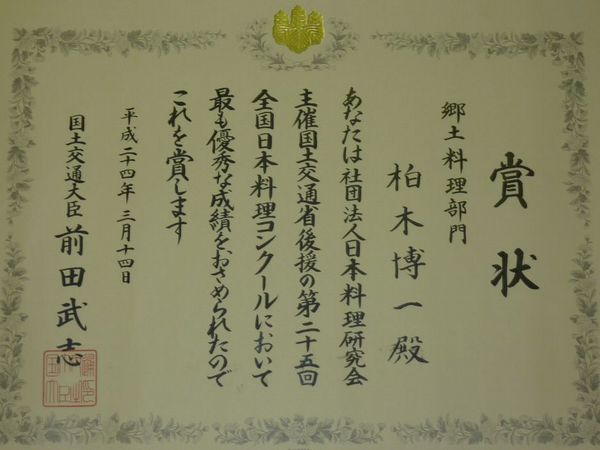 賞状
郷土料理部門
柏木博一殿
あなたは社団法人日本料理研究会
主催国土交通省後援の第二十五回
全国日本料理コンクールにおいて
最も優秀な成績をおさめられたので
これを賞します
平成二十四年三月十四日
国土交通大臣 前田武志